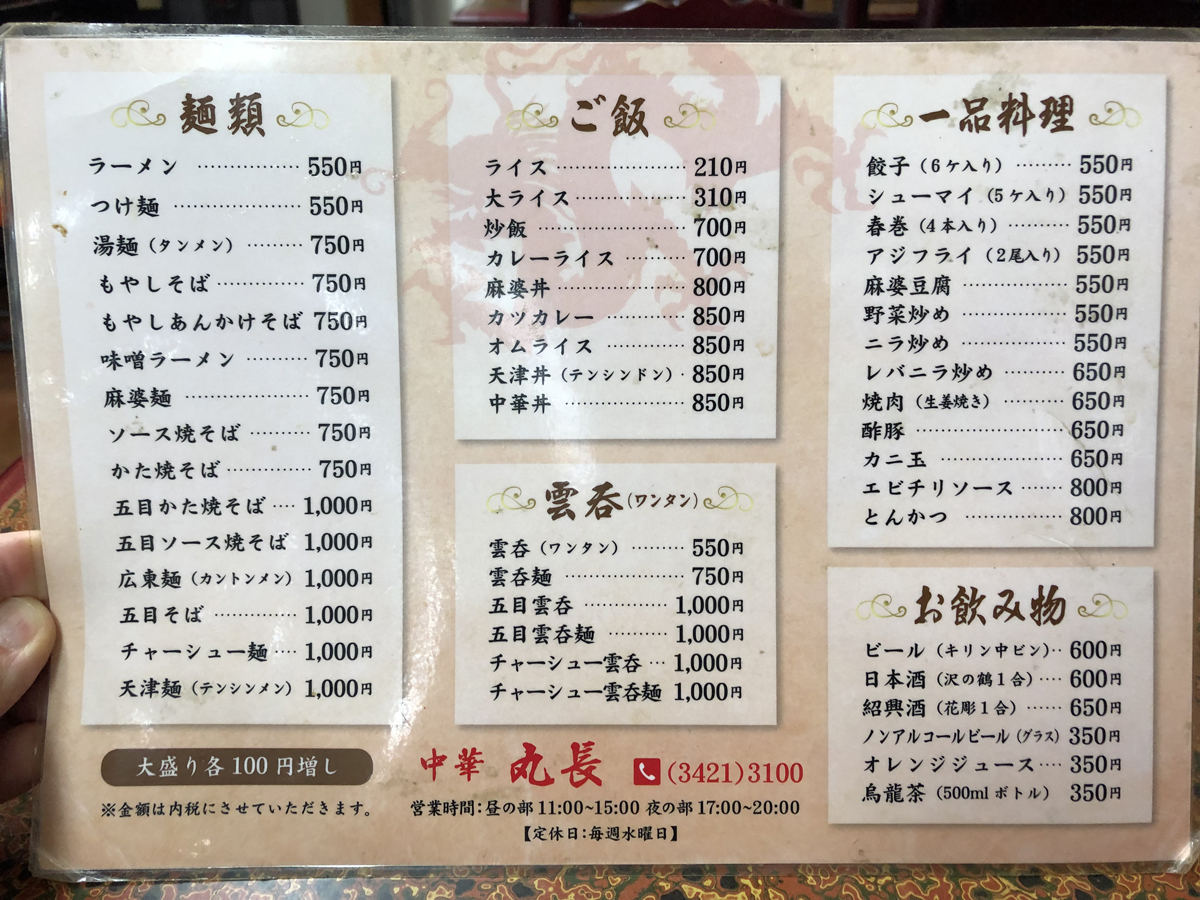 麺類
ラーメン ……………… 550円
つけ麺 ……………… 550円
湯麺(タンメン) ……… 750円
もやしそば ……………… 750円
もやしあんかけそば 750円
味噌ラーメン ……… 750円
麻婆麺 ……………… 750円
ソース焼そば ……… 750円
かた焼そば ……………… 750円
五目かた焼そば … 1,000円
五目ソース焼そば 1,000円
広東麺(カントンメン) 1,000円
五目そば ……………… 1,000円
チャーシュー麺 … 1,000円
天津麺(テンシンメン) 1,000円
大盛り各100円増し
※金額は内税にさせていただきます。
ご飯
ライス ……………… 210円
大ライス ……………… 310円
炒飯 ……………… 700円
カレーライス ……… 700円
麻婆丼 ……………… 800円
カツカレー ……………… 850円
オムライス ……………… 850円
天津丼(テンシンドン)・850円
中華丼 ……………… 850円
雲呑(ワンタン)
雲呑(ワンタン) ……… 550円
雲呑麺 ……………… 750円
五目雲呑 ……………… 1,000円
五目雲呑麺 ……… 1,000円
チャーシュー雲呑 … 1,000円
チャーシュー雲呑麺 1,000円
中華 丸長 (3421)3100
営業時間:昼の部 11:00~15:00 夜の部 17:00~20:00
【定休日:毎週水曜日】
一品料理
餃子(6ケ入り) ……… 550円
シューマイ(5ケ入り) 550円
春巻(4本入り) ……… 550円
アジフライ(2尾入り) 550円
麻婆豆腐 ……………… 550円
野菜炒め ……………… 550円
ニラ炒め ……………… 550円
レバニラ炒め ……… 650円
焼肉(生姜焼き) ……… 650円
酢豚 ……………… 650円
カニ玉 ……………… 650円
エビチリソース …… 800円
とんかつ ……………… 800円
お飲み物
ビール(キリン中ビン)‥ 600円
日本酒(沢の鶴1合)… 600円
紹興酒(花彫1合) …… 650円
ノンアルコールビール(グラス) 350円
オレンジジュース … 350円
烏龍茶(500ml ボトル) 350円